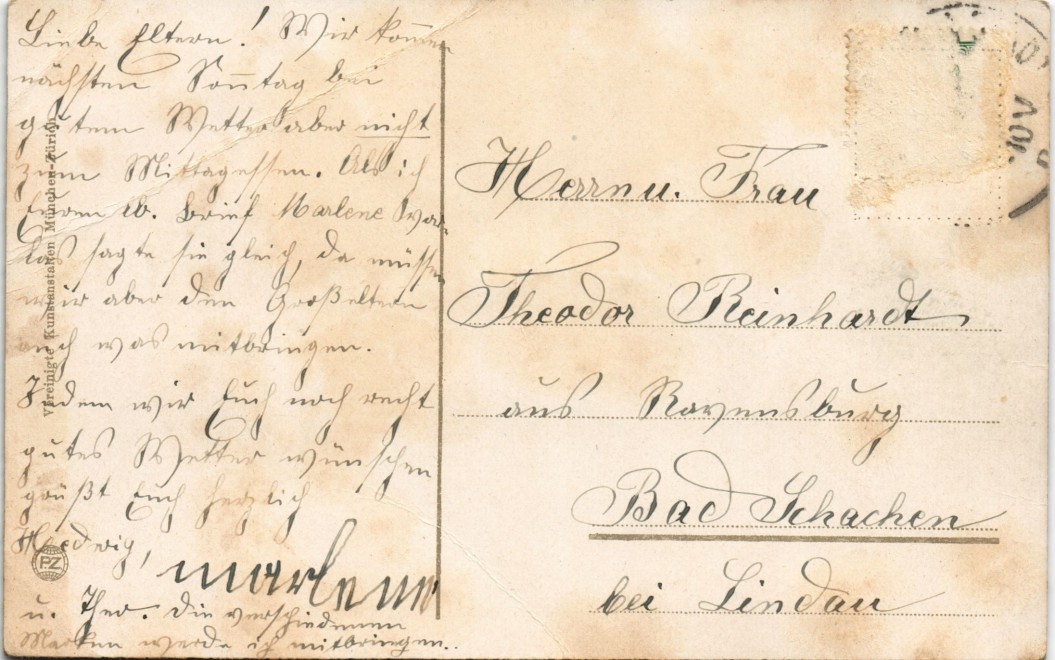 Liebe Eltern! Wir kom̅en
nächsten Son̅tag bei
gutem Wetter aber nicht
zum Mittagessen. Als ich
Euren lb. Brief Marlene vor-
las sagte sie gleich, da müssen
wir aber den Großeltern
auch was mitbringen.
Indem wir Euch noch recht
gutes Wetter wünschen
grüßt Euch herzlich
Hedwig,
marlene
u. Theo. Die verschiedenen
Marken werde ich mitbringen..
Vereinigte Kunstanstalten München-Zürich
PZ
Herrn u. Frau
Theodor Reinhardt
aus Ravensburg
Bad Schachen
bei Lindau
NOV